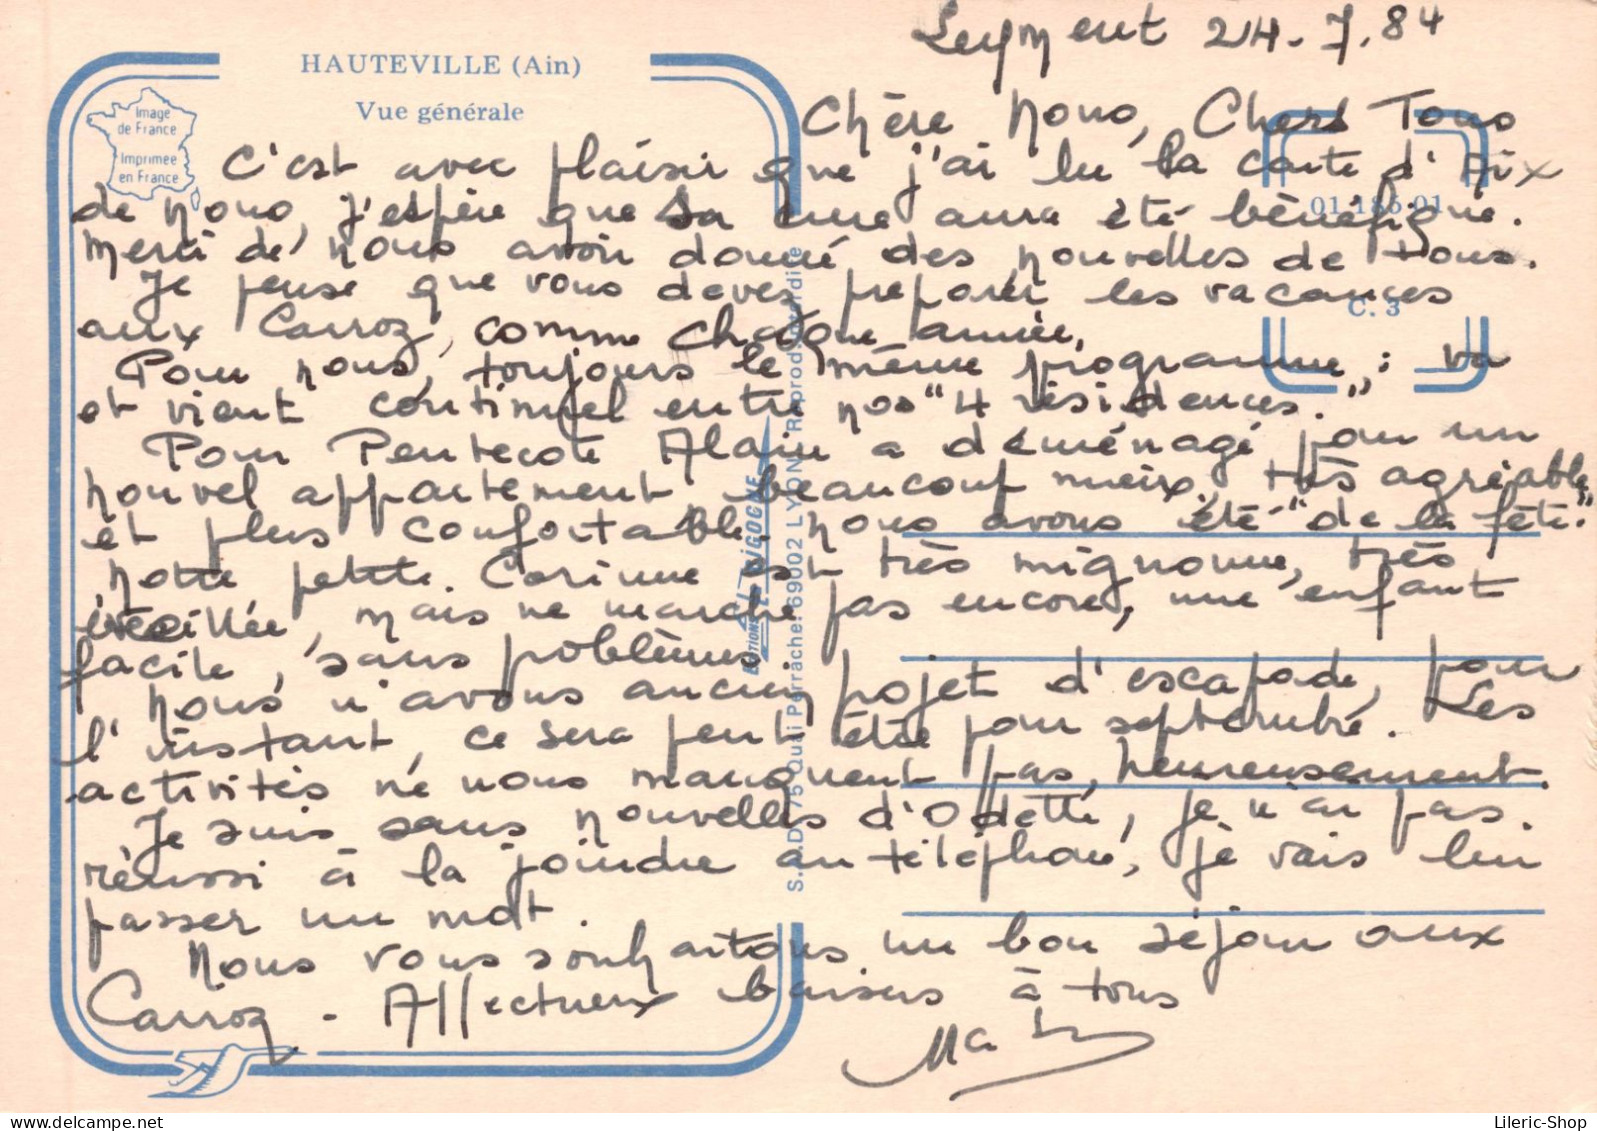 Leyment 24.7.84
HAUTEVILLE (Ain)
Vue générale
Image
de France
Imprimée
en France
01.185.01
C. 3
Chère Nono, Chers Tous
C'est avec plaisir que j'ai lu la carte d'Aix
de Nono, j'espère que sa cure aura été bénéfique.
Merci de nous avoir donné des nouvelles de tous.
Je pense que vous devez préparer les vacances
aux Carroz, comme chaque année.
Pour nous, toujours le même programme : va
et vient continuel entre nos "4 résidences."
Pour Pentecote Alain a déménagé pour un
nouvel appartement beaucoup mieux, très agréable
et plus confortable. nous avons été "de la fête."
Notre petite Corinne est très mignonne, très
éveillée, mais ne marche pas encore, une enfant
facile, sans problèmes
Nous n'avons aucun projet d'escapade, pour
l'instant, ce sera peut être pour septembre. Les
activités ne nous manquent pas, heureusement.
Je suis sans nouvelles d'Odette, je n'ai pas
réussi à la joindre au téléphone, je vais lui
passer un mot.
Nous vous souhaitons un bon séjour aux
Carroz. Affectueux baisers à tous
EDITIONS "LA CIGOGNE"
S.A.D. 75 Quai Perrache. 69002 LYON / Reprod. interdite
Lileric-Shop